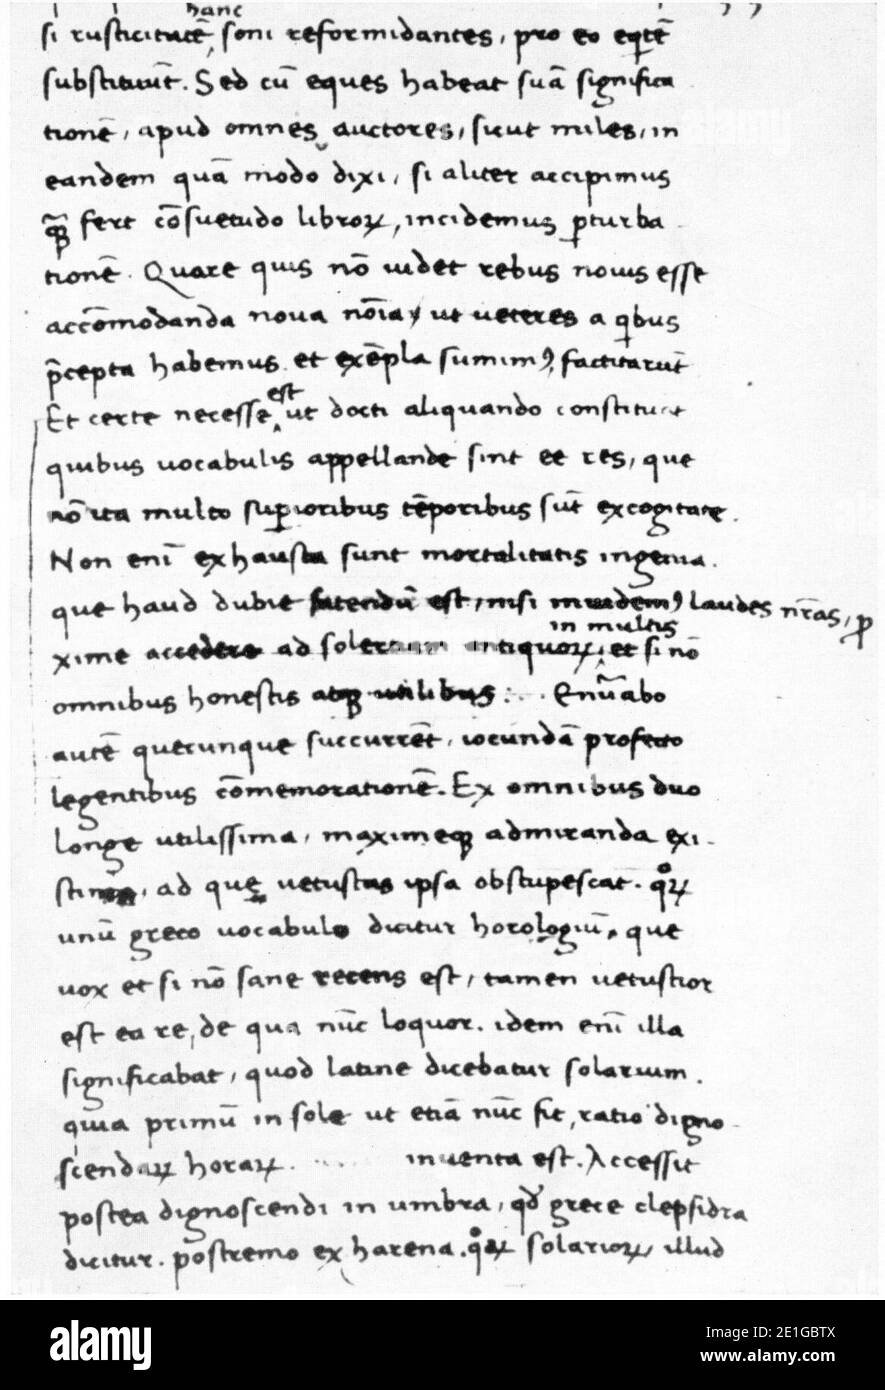 hanc
si rusticitatē soni reformidantes, pro eo eq̄tē
substituūt. Sed cū eques habeat suā significa
tionē, apud omnes auctores, sicut miles, in
eandem quā modo dixi, si aliter accipimus
quā fert cōsuetudo libroꝝ, incidemus ꝑturba
tionē. Quare quis nō videt rebus novis esse
accōmodanda nova nōīa, ut veteres a qbus
p̄cepta habemus et exēpla sumimꝰ, factitarūt
est
Et certe necesse ut docti aliquando constituāt
quibus vocabulis appellande sint ee res, que
nō ita multo suꝑioribus tēporibus sūt excogitate.
Non enī exhausta sunt mortalitatis ingenia.
que haud dubie fatendū est, nisi invidemꝰ laudes nr̄as, ꝓ
in multis
xime accedere ad solertiam antiquoꝝ, et si nō
omnibus honestis atqꝫ utilibus. Enūabo
autē quecunque succurrēt, iocundā profecto
legentibus cōmemorationē. Ex omnibus duo
longe utilissima, maximeqꝫ admiranda exi
stimo, ad que vetustas ipsa obstupescat. qoꝝ
unū greco vocabulo dicitur horologiū, que
vox et si nō sane recens est, tamen vetustior
est ea re, de qua nūc loquor. idem enī illa
significabat, quod latine dicebatur solarium.
quia primū in sole ut etiā nūc fit, ratio digno
scendaꝝ horaꝝ inventa est. Accessit
postea dignoscendi in umbra, qđ grece clepsidra
dicitur. postremo ex harena. qoꝝ solarioꝝ, illud
alamy
Image ID: 2E1GBTX
www.alamy.com